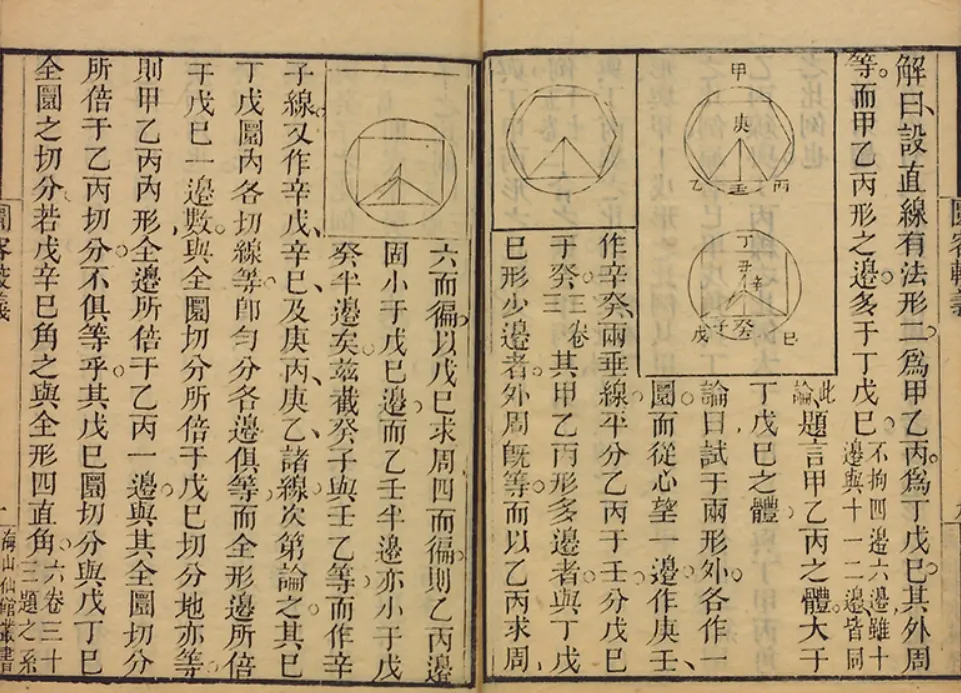 圜容較義
解曰設直線有法形二為甲乙丙為丁戊巳其外周
等而甲乙丙形之邊多于丁戊巳不拘四邊六邊雖十
邊與十一二邊皆同
此論題言甲乙丙之體大于
丁戊巳之體
論曰試于兩形外各作一
圜而從心望一邊作庚壬
作辛癸兩垂線平分乙丙于壬分戊巳
于癸三卷三其甲乙丙形多邊者與丁戊
巳形少邊者外周既等而以乙丙求周
甲
庚
乙 壬 丙
丁
丑 辛
戊 子 癸 巳
六而徧以戊巳求周四而徧則乙丙邊
固小于戊巳邊而乙壬半邊亦小于戊
癸半邊矣茲截癸子與壬乙等而作辛
子線又作辛戊辛巳及庚丙庚乙諸線次第論之其巳
丁戊圜內各切線等卽勻分各邊俱等而全形邊所倍
于戊巳一邊數與全圜切分所倍于戊巳切分地亦等
則甲乙丙內形全邊所倍于乙丙一邊與其全圜切分
所倍于乙丙切分不俱等乎其戊巳圜切分與戊丁巳
全圜之切分若戊辛巳角之與全形四直角六卷三十
三題之系
圜容較義
海山仙館叢書